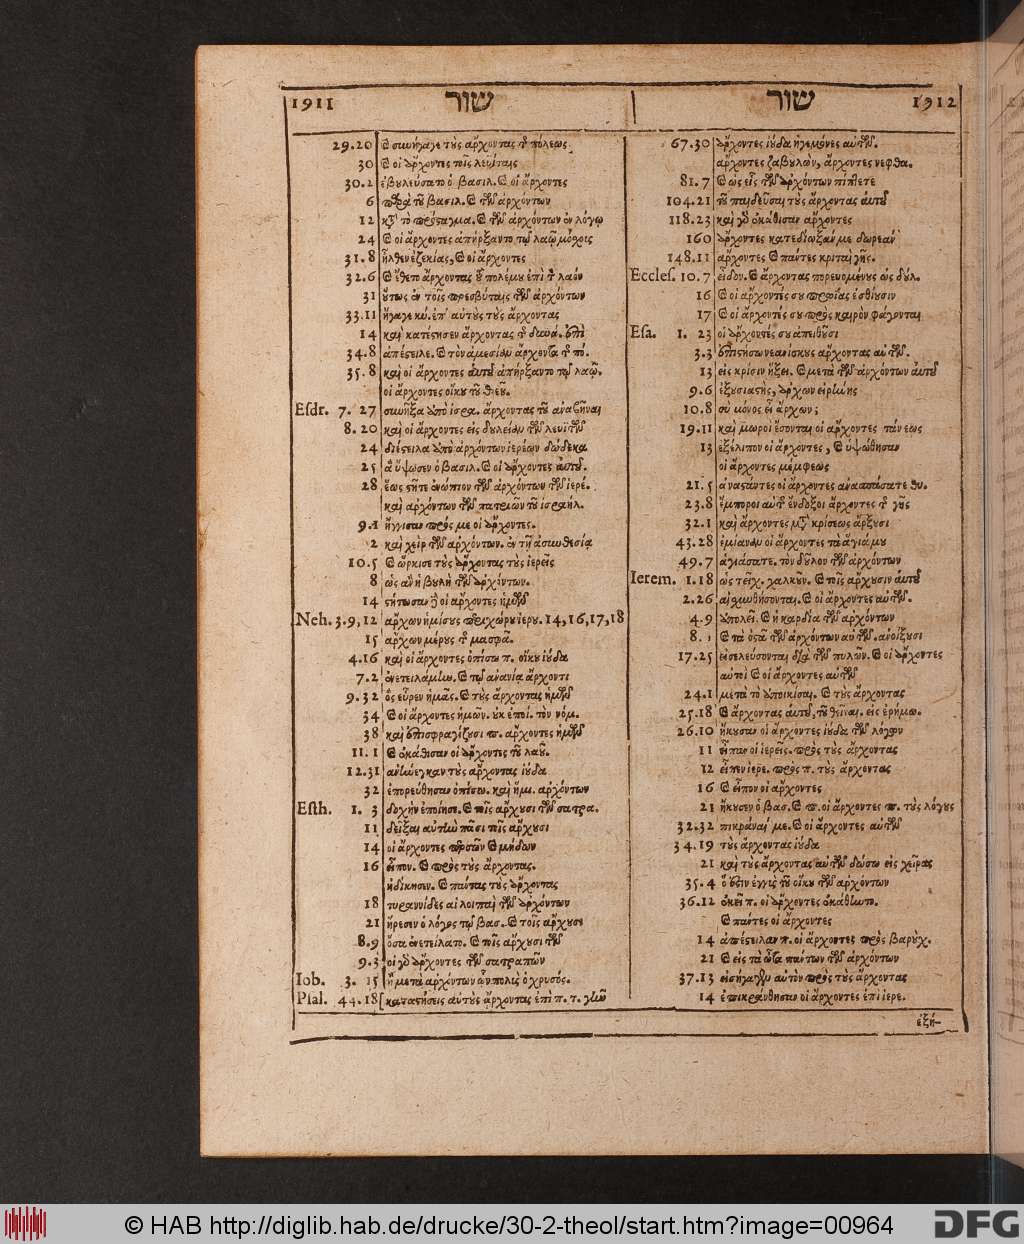 1911 שור
29.20 συνήγαγε τοὺς ἄρχοντας τῆς πόλεως
30 καὶ οἱ ἄρχοντες τοῖς λευίταις
30.2 ἐβουλεύσατο ὁ βασιλ. καὶ οἱ ἄρχοντες
6 παρὰ τοῦ βασιλ. καὶ τῶν ἀρχόντων
12 τὸ πρόσταγμα. καὶ τῶν ἀρχόντων ἐν λόγῳ
24 καὶ οἱ ἄρχοντες ἀπήρξαντο τῷ λαῷ μόσχοις
31.8 ἦλθεν ἐζεκίας, καὶ οἱ ἄρχοντες
32.6 καὶ ἔθετο ἄρχοντας τοῦ πολέμου ἐπὶ τὸν λαὸν
31 οὕτως ἐν τοῖς πρεσβύταις τῶν ἀρχόντων
33.11 ἤγαγε κύ. ἐπ' αὐτοὺς τοὺς ἄρχοντας
14 καὶ κατέστησεν ἄρχοντας τῆς δυνά.
34.8 ἀπέστειλε. καὶ τὸν ἀμεσίαν ἄρχοντα τῆς πό.
35.8 καὶ οἱ ἄρχοντες αὐτοῦ ἀπήρξαντο τῷ λαῷ.
οἱ ἄρχοντες οἴκου τοῦ θεοῦ.
Esdr. 7.27 συνῆξα ἀπὸ ἰσρα. ἄρχοντας τοῦ ἀναβῆναι
8.20 καὶ οἱ ἄρχοντες εἰς δουλείαν τῶν λευϊτῶν
24 διέστειλα ἀπὸ ἀρχόντων ἱερέων δώδεκα
25 ἃ ὕψωσεν ὁ βασιλ. καὶ οἱ ἄρχοντες αὐτοῦ.
28 ἕως στῆτε ἐνώπιον τῶν ἀρχόντων τῶν ἱερέ.
καὶ ἀρχόντων τῶν πατριῶν τοῦ ἰσραήλ.
9.1 ἤγγισαν πρός με οἱ ἄρχοντες.
2 καὶ χεὶρ τῶν ἀρχόντων. ἐν τῇ ἀσυνθεσίᾳ
10.5 καὶ ὥρκισε τοὺς ἄρχοντας τοὺς ἱερεῖς
8 ὡς ἂν ἡ βουλὴ τῶν ἀρχόντων.
14 στήτωσαν δὴ οἱ ἄρχοντες ἡμῶν
Neh. 3.9,12 ἄρχων ἡμίσους περιχώρου ἱερου. 14,16,17,18
15 ἄρχων μέρους τῆς μασφᾶ.
4.16 καὶ οἱ ἄρχοντες ὀπίσω π. οἴκου ἰούδα
7.2 ἐνετειλάμην. καὶ τῷ ἀνανίᾳ ἄρχοντι
9.32 ὃς εὗρεν ἡμᾶς. καὶ τοὺς ἄρχοντας ἡμῶν
34 καὶ οἱ ἄρχοντες ἡμῶν. οὐκ ἐποί. τὸν νόμ.
38 καὶ ἐπισφραγίζουσι π. ἄρχοντες ἡμῶν
11.1 καὶ ἐκάθισαν οἱ ἄρχοντες τοῦ λαοῦ.
12.31 ἀνήνεγκαν τοὺς ἄρχοντας ἰούδα
32 ἐπορεύθησαν ὀπίσω. καὶ ἥμι. ἀρχόντων
Esth. 1.3 δοχὴν ἐποίησε. καὶ τοῖς ἄρχουσι τῶν σατρα.
11 δεῖξαι αὐτὴν πᾶσι τοῖς ἄρχουσι
14 οἱ ἄρχοντες περσῶν καὶ μήδων
16 εἶπον. καὶ πρὸς τοὺς ἄρχοντας.
ἠδίκησεν. καὶ πάντας τοὺς ἄρχοντας
18 τυραννίδες αἱ λοιπαὶ τῶν ἀρχόντων
21 ἤρεσεν ὁ λόγος τῷ βασ. καὶ τοῖς ἄρχουσι
8.9 ὅσα ἐνετείλατο. καὶ τοῖς ἄρχουσι τῶν
9.3 οἱ γὰρ ἄρχοντες τῶν σατραπῶν
Iob. 3.15 ἢ μετὰ ἀρχόντων ὧν πολὺς ὁ χρυσός.
Psal. 44.18 καταστήσεις αὐτοὺς ἄρχοντας ἐπὶ π. τ. γῆν
שור 1912
67.30 ἄρχοντες ἰούδα ἡγεμόνες αὐτῶν.
ἄρχοντες ζαβουλὼν, ἄρχοντες νεφθα.
81.7 καὶ ὡς εἷς τῶν ἀρχόντων πίπτετε
104.21 τοῦ παιδεῦσαι τοὺς ἄρχοντας αὐτοῦ
118.23 καὶ γὰρ ἐκάθισαν ἄρχοντες
160 ἄρχοντες κατεδίωξάν με δωρεάν
148.11 ἄρχοντες καὶ πάντες κριταὶ γῆς.
Eccles. 10.7 εἶδον. καὶ ἄρχοντας πορευομένους ὡς δούλ.
16 καὶ οἱ ἄρχοντές σου πρωΐας ἐσθίουσιν
17 καὶ οἱ ἄρχοντές σου πρὸς καιρὸν φάγονται
Esa. 1.23 οἱ ἄρχοντές σου ἀπειθοῦσι
3.3 ἐπιστήσω νεανίσκους ἄρχοντας αὐτῶν.
13 εἰς κρίσιν ἥξει. καὶ μετὰ τῶν ἀρχόντων αὐτοῦ
9.6 ἐξουσιαστὴς, ἄρχων εἰρήνης
10.8 σὺ μόνος εἶ ἄρχων;
19.11 καὶ μωροὶ ἔσονται οἱ ἄρχοντες τάνεως
13 ἐξέλιπον οἱ ἄρχοντες, καὶ ὑψώθησαν
οἱ ἄρχοντες μέμφεως
21.5 ἀναστάντες οἱ ἄρχοντες ἀνασπάσατε θυ.
23.8 ἔμποροι αὐτῆς ἔνδοξοι ἄρχοντες τῆς γῆς
32.1 καὶ ἄρχοντες μετὰ κρίσεως ἄρξουσι
43.28 ἐμίαναν οἱ ἄρχοντες τὰ ἅγιά μου
49.7 ἁγιάσατε. τὸν δοῦλον τῶν ἀρχόντων
Ierem. 1.18 ὡς τεῖχ. χαλκοῦν. καὶ τοῖς ἄρχουσιν αὐτοῦ
2.26 αἰσχυνθήσονται. καὶ οἱ ἄρχοντες αὐτῶν.
4.9 ἀπολεῖ. καὶ ἡ καρδία τῶν ἀρχόντων
8. καὶ τὰ ὀστᾶ τῶν ἀρχόντων αὐτῶν. ἀνοίξουσι
17.25 εἰσελεύσονται διὰ τῶν πυλῶν. καὶ οἱ ἄρχοντες
αὐτοὶ καὶ οἱ ἄρχοντες αὐτῶν
24.1 μετὰ τὸ ἀποικίσαι. καὶ τοὺς ἄρχοντας
25.18 καὶ ἄρχοντας αὐτοῦ, τοῦ θεῖναι. εἰς ἐρήμω.
26.10 ἤκουσαν οἱ ἄρχοντες ἰούδα τῶν λόγον
11 εἶπαν οἱ ἱερεῖς. πρὸς τοὺς ἄρχοντας
12 εἶπεν ἱερε. πρὸς π. τοὺς ἄρχοντας
16 καὶ εἶπον οἱ ἄρχοντες
21 ἤκουσεν ὁ βασ. καὶ π. οἱ ἄρχοντες π. τοὺς λόγους
32.32 πικρᾶναί με. καὶ οἱ ἄρχοντες αὐτῶν
34.19 τοὺς ἄρχοντας ἰούδα
21 καὶ τοὺς ἄρχοντας αὐτῶν δώσω εἰς χεῖρας
35.4 ὅ ἐστιν ἐγγὺς τοῦ οἴκου τῶν ἀρχόντων
36.12 ἐκεῖ π. οἱ ἄρχοντες ἐκάθηντο.
καὶ πάντες οἱ ἄρχοντες
14 ἀπέστειλαν π. οἱ ἄρχοντες πρὸς βαρούχ.
21 καὶ εἰς τὰ ὦτα πάντων τῶν ἀρχόντων
37.13 εἰσήγαγον αὐτὸν πρὸς τοὺς ἄρχοντας
14 ἐπικράνθησαν οἱ ἄρχοντες ἐπὶ ἱερε.
ἐξή-
© HAB http://diglib.hab.de/drucke/30-2-theol/start.htm?image=00964
DFG